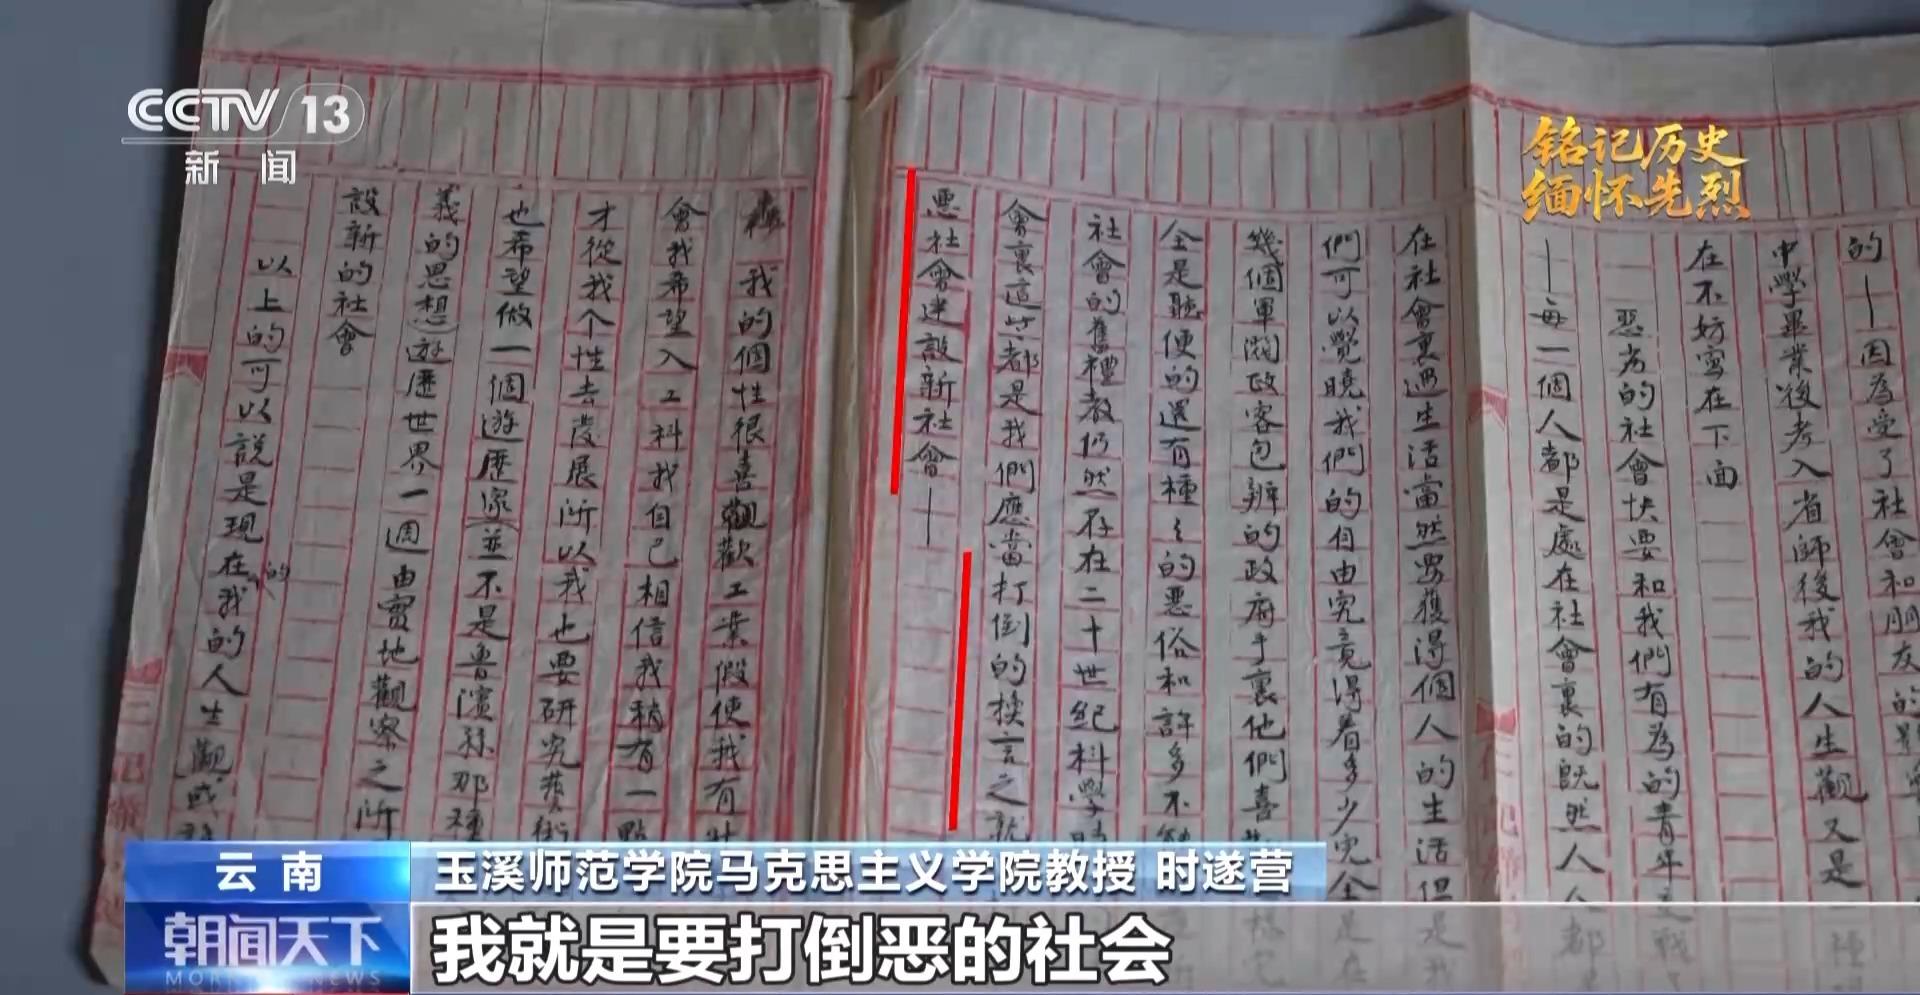 CCTV 13
新闻
铭记历史
缅怀先烈
的—因為受了社會和朋友的影響
中學畢業後考入省師後我的人生觀又是一種
在不妨寫在下面
惡劣的社會快要和我們有為的青年交戰
—每一個人都是處在社會裏的既然人人都
在社會裏過生活當然要獲得個人的生活但是我
們可以覺曉我們的自由究竟得着多少完全是在
幾個軍閥政客包辦的政府手裏他們喜
全是聽便的還有種々的惡俗和許多不
社會的舊禮教仍然存在二十世紀科學時
會裏這些都是我們應當打倒的換言之就
惡社會建設新社會—
我的個性很喜觀歡工業假使我有
會我希望入工科我自己相信我稍有一點
才從我个性去发展所以我也要研究藝術
也希望做一個遊歷家(並不是魯濱孫那種
義的思想)遊歷世界一週由實地觀察之所
設新的社會
以上的可以說是現在我的的人生觀或
云南
玉溪师范学院马克思主义学院教授 时遂营
朝闻天下
MORNING NEWS
我就是要打倒恶的社会